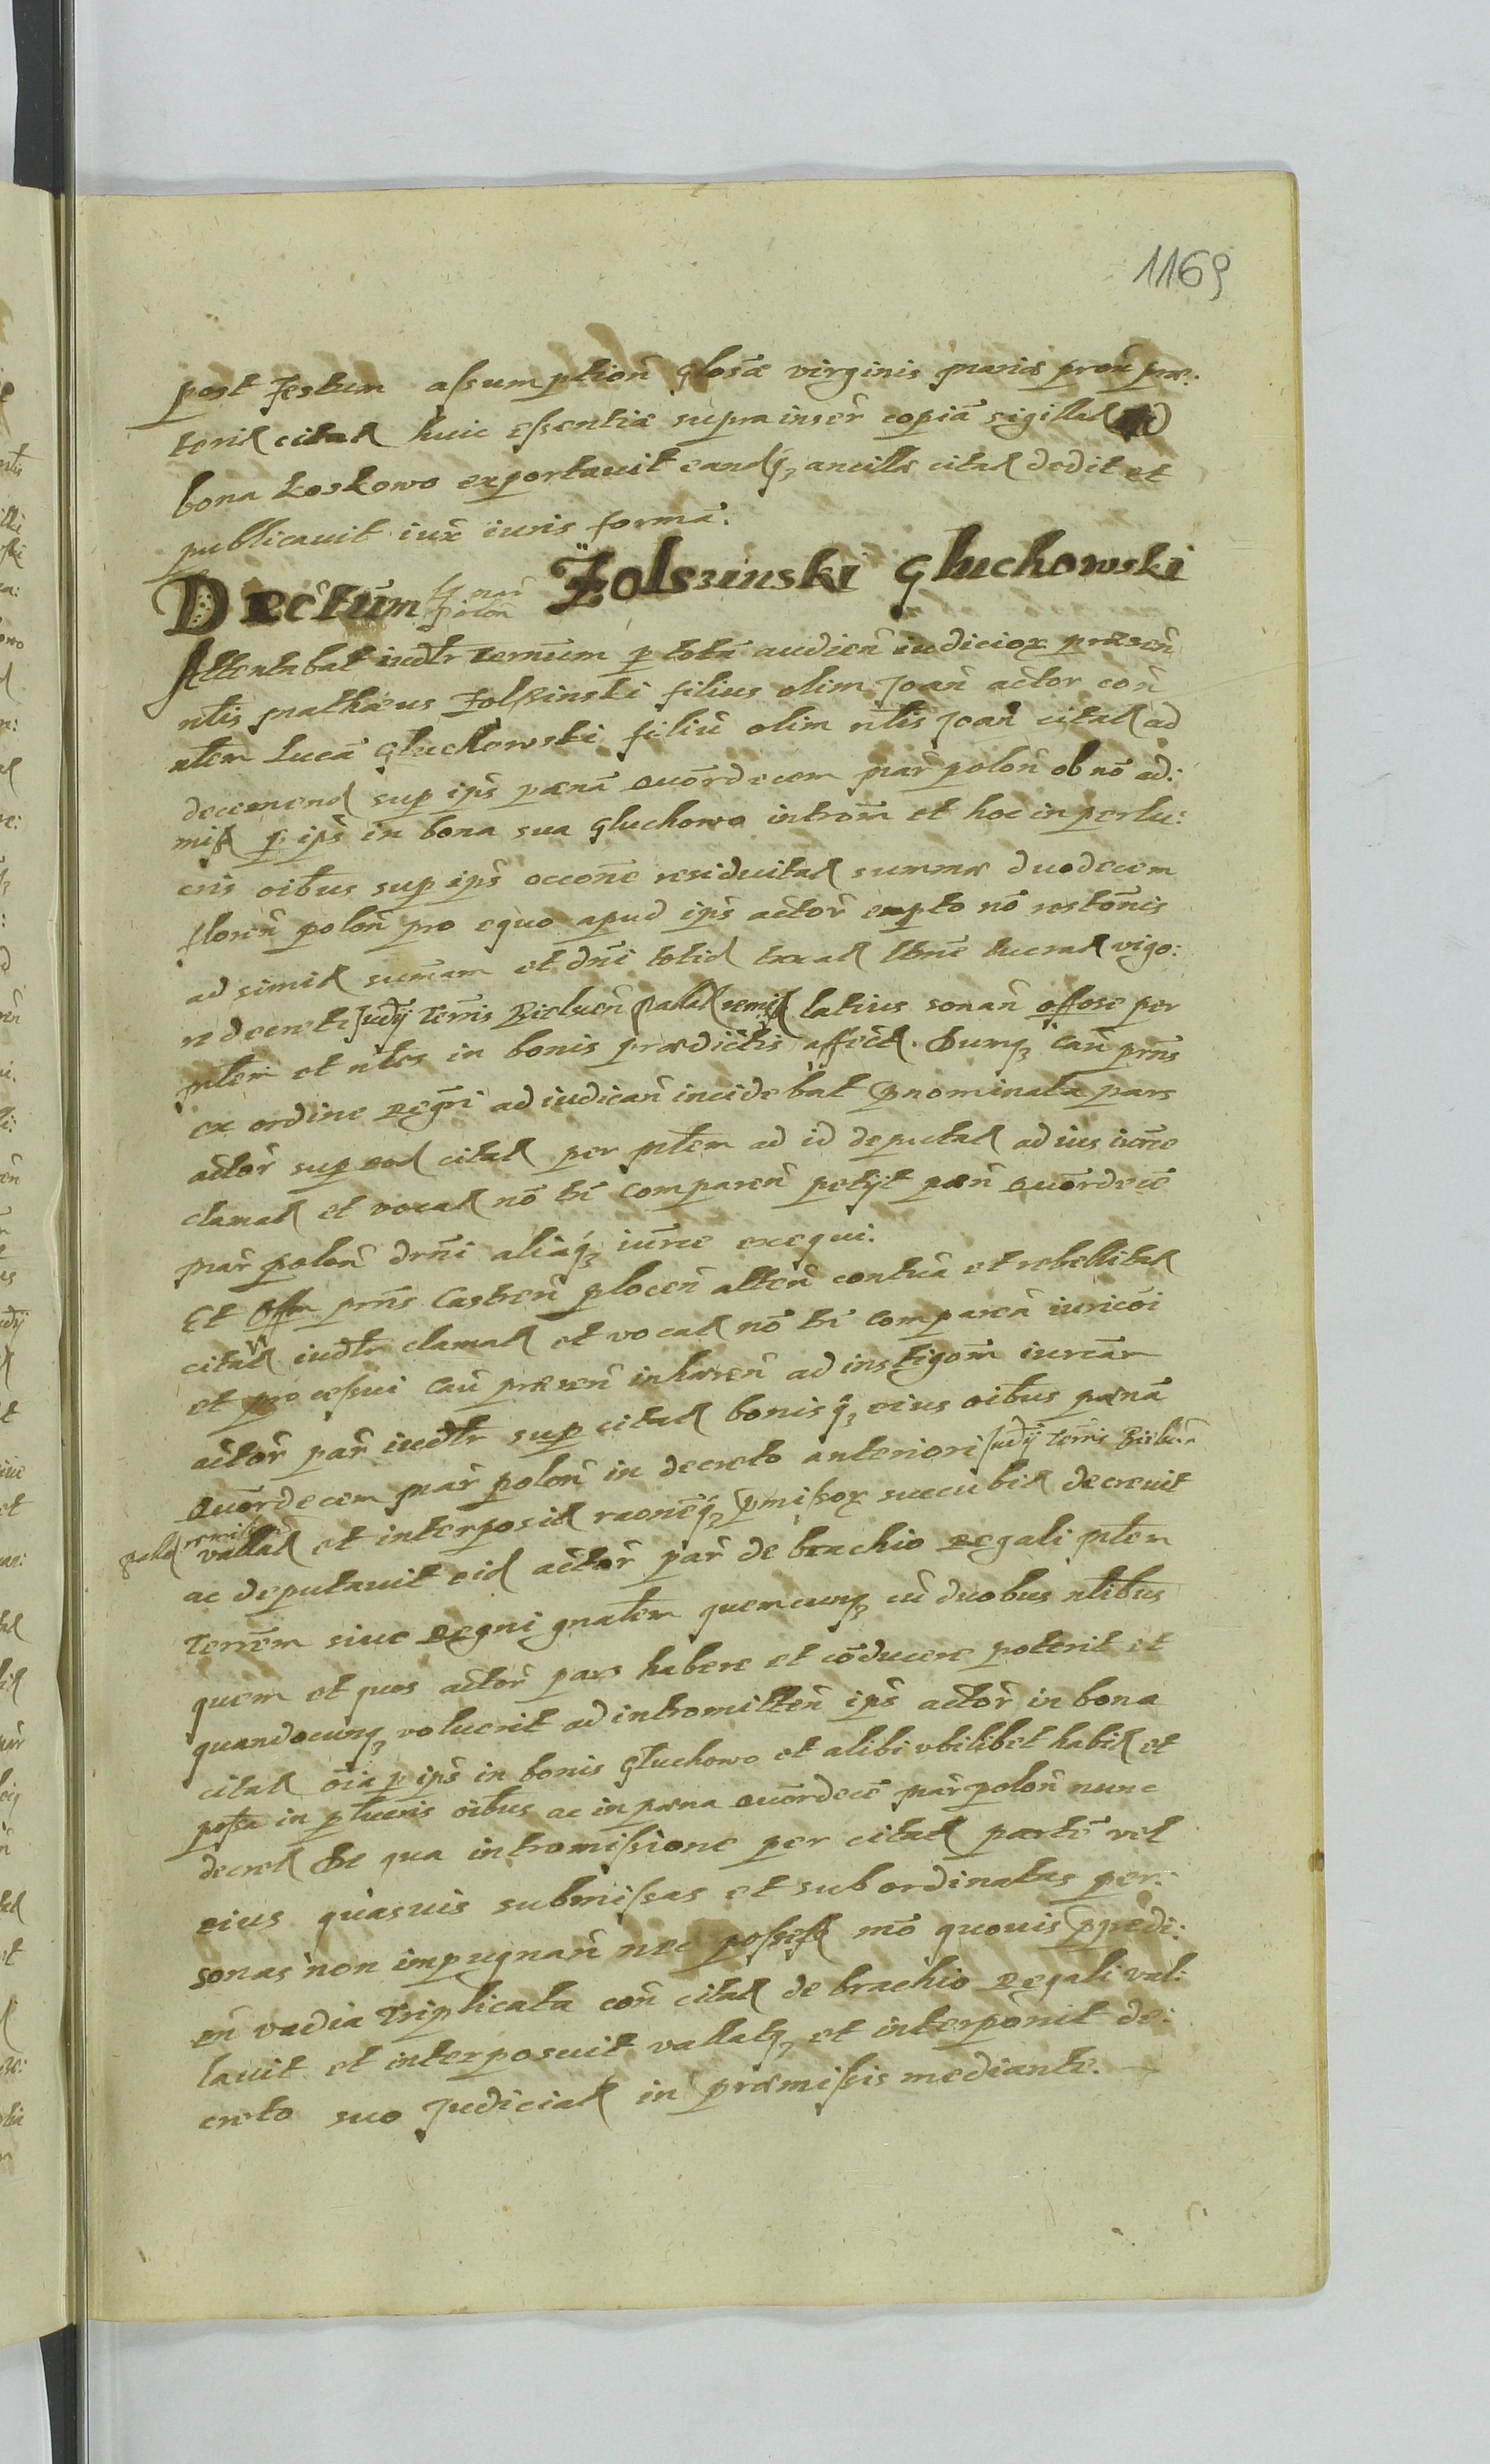 1169
post Festum assumptioñ glosæ virginis mariæ proxi præ:
terit citat huic essentiæ suprainser copiã sigillat
bona Loskowo exportauit eandq3 ancillæ citat dedit et
publicauit iux iuris formã.
Decretum 14 mar polon Żolszinski Gluchowski
Attentabat iudtr terminum p totã audien iudicior præsen
nlis Mathæus Zolszinski filius olim Joañ actor coñ
nlem Lucã Gluchowski filiũ olim nlis Joañ citat ad
decernend sup ips pænã quordecem mar poloñ ob nõ ad:
miss p ips in bona sua Gluchowo introm et hoc in perlu:
cris oibus sup ips occone residuitat summæ duodecem
floreñ poloñ pro equo apud ips actor empto nõ restonis
ad simil summam et dni totid taxat lucrat vigo:
re decreti Judij Terris Bielscen latius sonañ offose per
mlem et nles in bonis prædictis affect. Dumq3 cau prns
ex ordine Regri ad iudicañ incidebat pnominata pars
actor sup eod citat per mlem ad id deputat ad ius iurne
clamat et vocat nõ tñ comparen petyt pæn quordecē
mar poloñ drni aliaq3 iurne exequi.
Et Offm prns Castren plocen atten contuã et rebellitat
citati iudtr clamat et vocat nõ tñ comparen iuricõi
et processui cau præsen inhæren ad instigom iurcam
actor par iudtr sup citat bonisq3 eius oibus pænã
quordecem mar poloñ in decreto anteriori Judij Terris Bielscen
vallat et interposit raoneq3 pmissor succubit decreuit
ac deputauit eid actor par de brachio Regali mlem
Terrem siue Regni gnalem quemcunq3 cũ duobus nlibus
quem et quos actor pars habere et cõducere poterit et
quandocunq3 voluerit ad intromitten ips actor in bona
citat oia p ips in bonis Gluchowo et alibi vbilibet habit et
possa in plucris oibus ac in pæna quordecē mar poloñ nunc
decret De qua intromissione per citat partē vel
eius quasuis submissas et subordinatas per:
sonas non impugnañ nec possess mõ quouis ppedi:
en vadia Triplicata coñ citat de brachio Regali val:
lauit et interposuit vallatq3 et interponit de:
creto suo Judiciali in præmissis mediante.